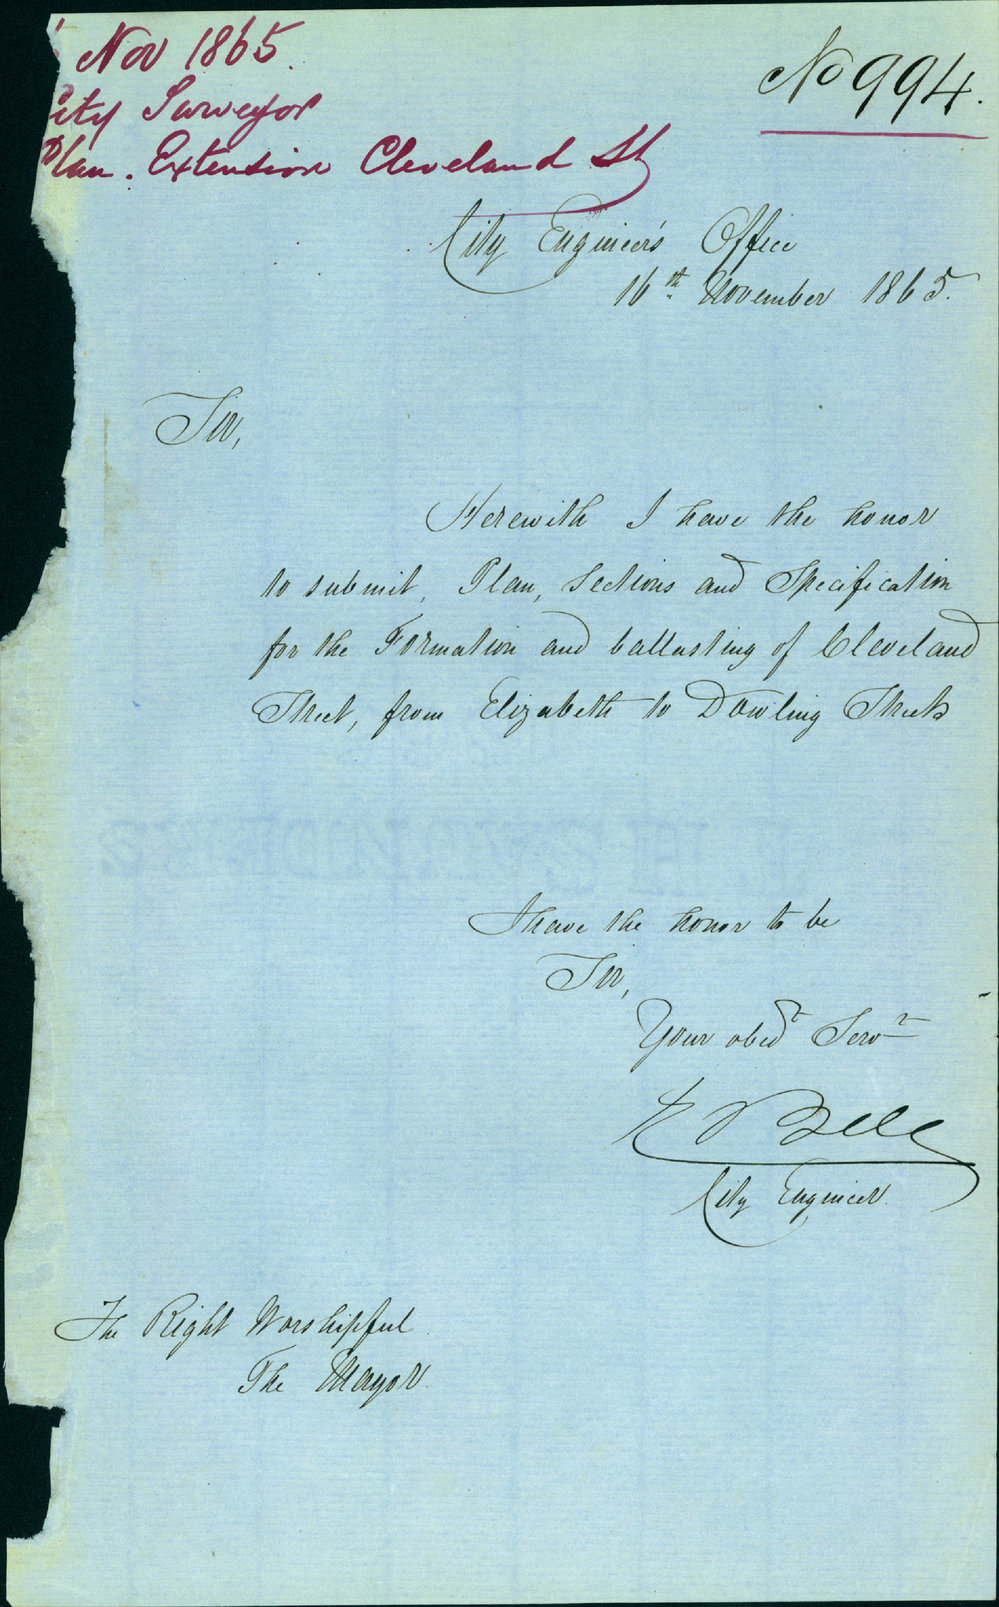 Nov 1865.
City Surveyor
Plan. Extension Cleveland St
No 994.
City Engineer's Office
16th November 1865.
Sir,
Herewith I have the honor
to submit, Plan, Sections and Specification
for the Formation and ballasting of Cleveland
Street, from Elizabeth to Dowling Streets
I have the honor to be
Sir,
Your obedt Servt
E Bell
City Engineer.
The Right Worshipful
The Mayor.